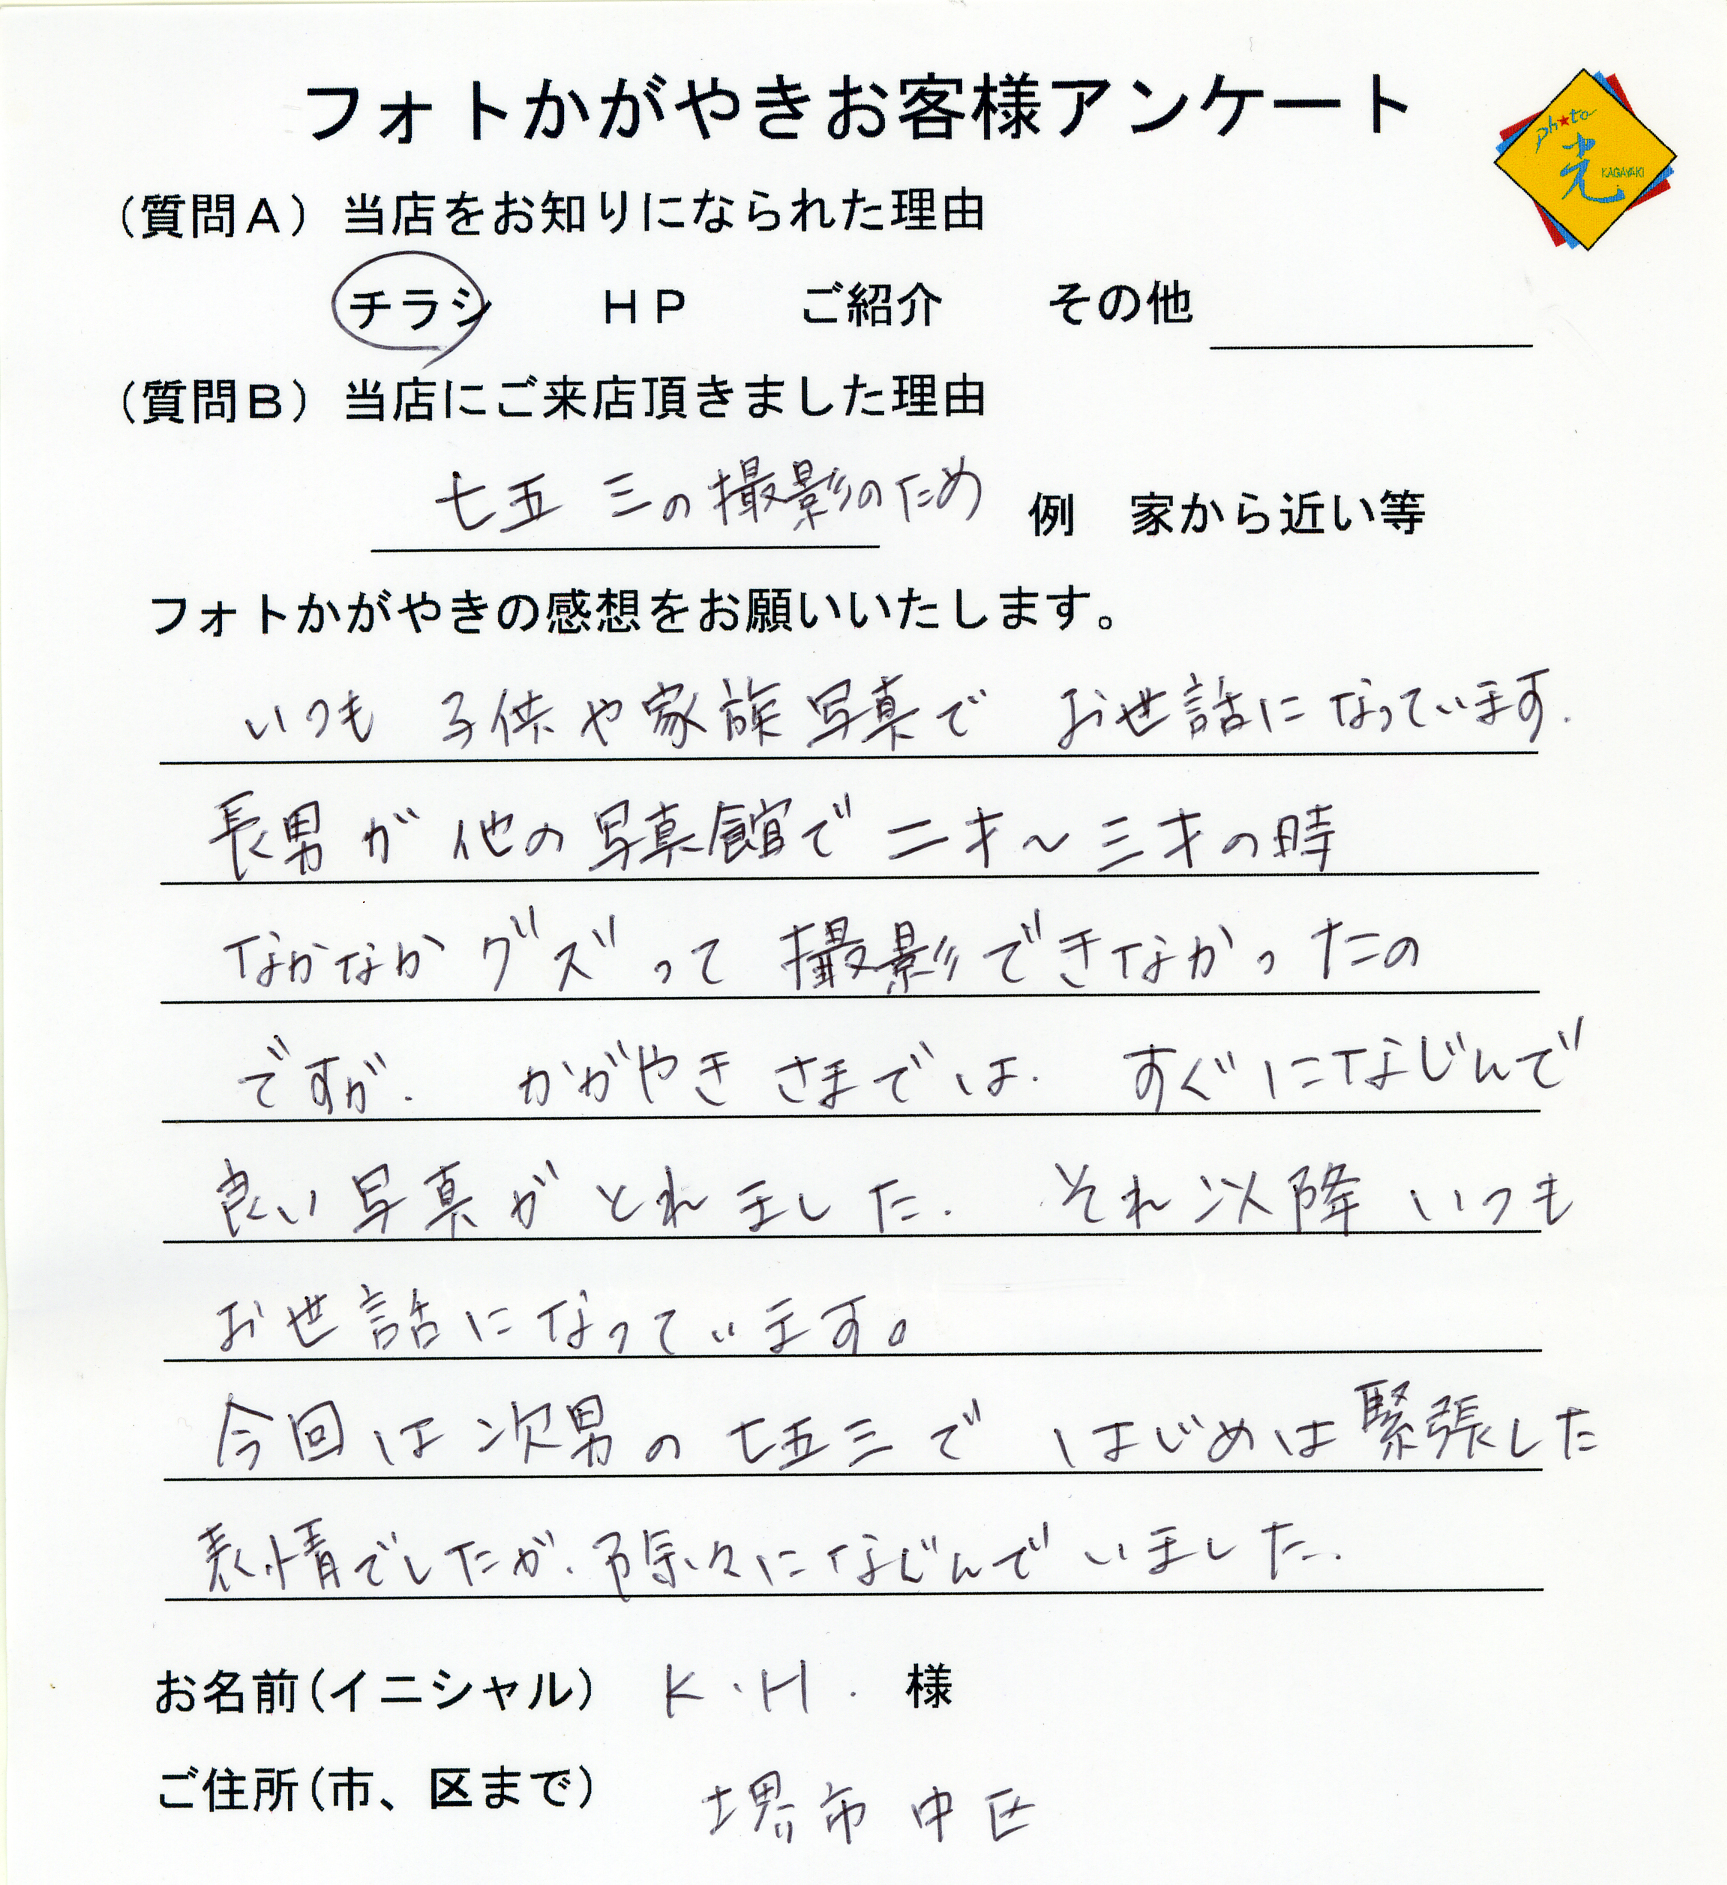 フォトかがやきお客様アンケート
photo
光
KAGAYAKI
(質問A) 当店をお知りになられた理由
チラシ HP ご紹介 その他
(質問B) 当店にご来店頂きました理由
七五三の撮影のため 例 家から近い等
フォトかがやきの感想をお願いいたします。
いつも 子供や家族写真で お世話になっています.
長男が他の写真館で二才～三才の時
なかなかグズって 撮影できなかったの
ですが. かがやきさまでは. すぐになじんで
良い写真がとれました. それ以降 いつも
お世話になっています。
今回は次男の七五三で はじめは緊張した
表情でしたが、徐々になじんでいました.
お名前(イニシャル) K.H. 様
ご住所(市、区まで) 堺市中区